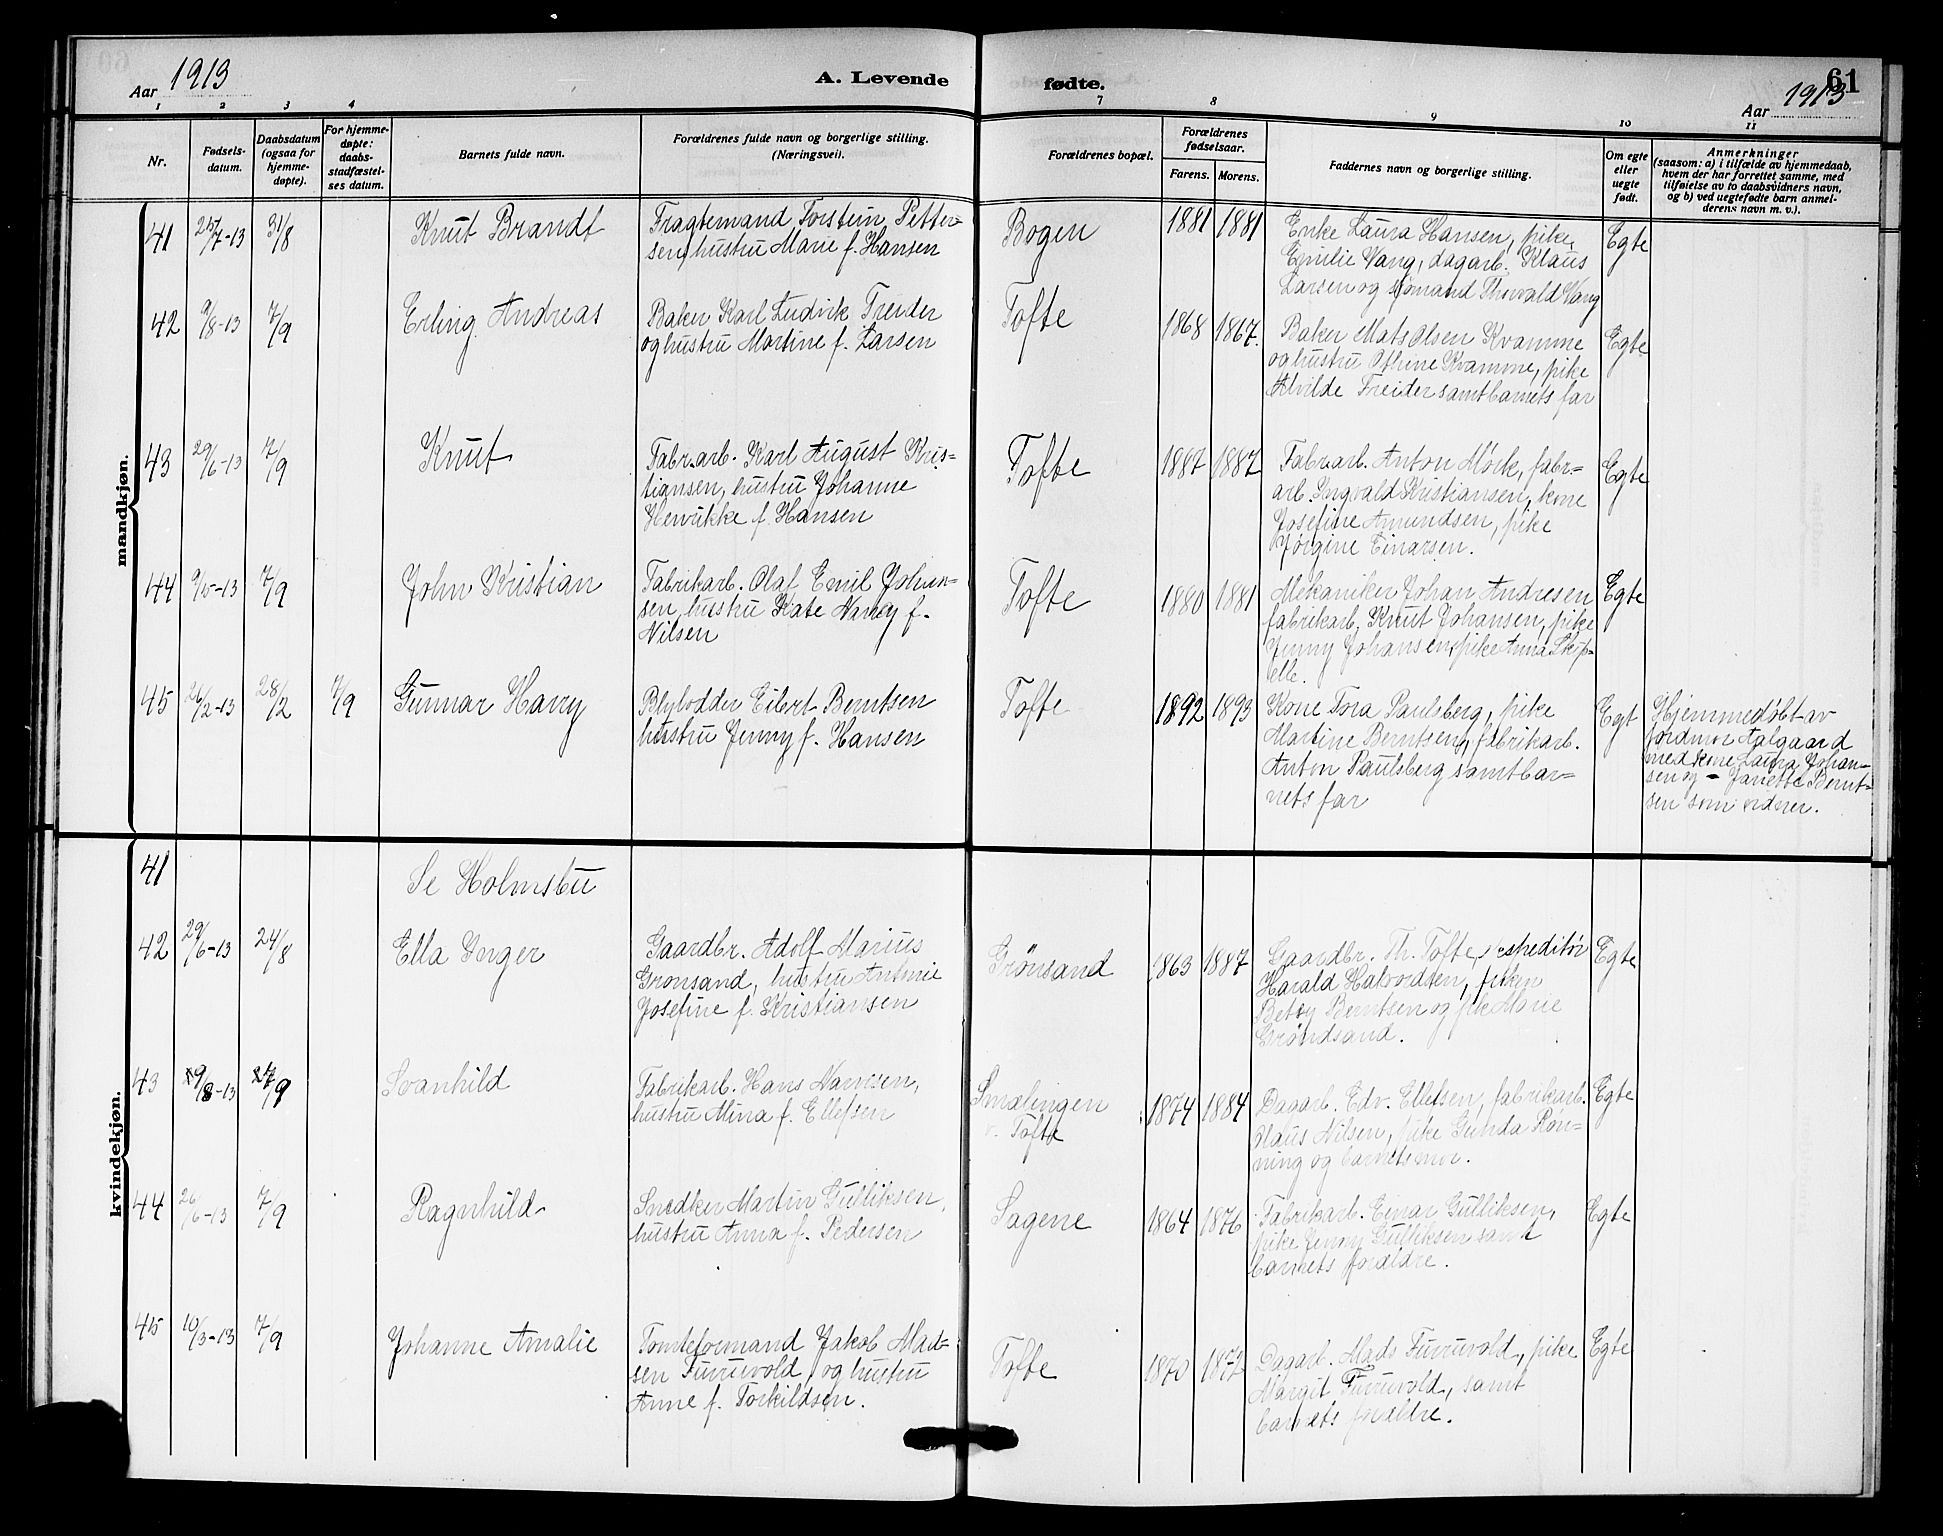 Aar 1913
A. Levende
fødte.
61
Aar 1913
1 2 3 4 7 8 9 10 11
Nr.
Fødsels-
datum.
Daabsdatum
(ogsaa for
hjemme-
døpte).
For hjemme-
døpte:
daabs-
stadfæstel-
ses datum.
Barnets fulde navn.
Forældrenes fulde navn og borgerlige stilling.
(Næringsvei).
Forældrenes bopæl.
Forældrenes
fødselsaar.
Farens. Morens.
Faddernes navn og borgerlige stilling.
Om egte
eller
uegte
født.
Anmerkninger
(saasom: a) i tilfælde av hjemmedaab,
hvem der har forrettet samme, med
tilføielse av to daabsvidners navn,
og b) ved uegtefødte barn anmel-
derens navn m. v.).
mandkjøn.
41 25/7-13 31/8
Knut Brandt
Fragtemand Torstein Petter-
sen, hustru Marie f. Hansen
Bogen
1881 1881
Enke Laura Hansen, pike
Emilie Vang, dagarb. Klaus
Larsen og sjømand Thorvald Vang
Egte
42 9/8-13 7/9
Erling Andreas
Baker Karl Ludvik Treider
og hustru Martine f. Larsen
Tofte
1868 1867.
Baker Mats Olsen Kvamme
og hustru Othine Kvamme, pike
Alvilde Treider samt barnets far
Egte
43 29/6-13 7/9
Knut
Fabr.arb. Karl August Kris-
tiansen, hustru Johanne
Henrikke f. Hansen
Tofte
1887 1887
Fabr.arb. Anton Mörk, fabr.-
arb. Ingvald Kristiansen, kone
Josefine Amundsen, pike
Jörgine Einarsen.
Egte
44 9/5-13 7/9
John Kristian
Fabrikarb. Olaf Emil Johan-
sen, hustru Kate Nancy f.
Nilsen
Tofte
1880 1881
Mekaniker Johan Andresen
fabrikarb. Knut Johansen, pike
Jenny Johansen, pike Anna Skip-
elle.
Egte
45 26/2-13 28/2 7/9
Gunnar Harry
Blylodder Eilert Berntsen
hustru Jenny f. Hansen
Tofte
1892 1893
Kone Tora Paulsberg, pike
Martine Berntsen, fabrikarb.
Anton Paulsberg samt bar-
nets far
Egt
Hjemmedöbt av
jordmor Aalgaard
med kone Laura Johan-
sen og - Janette Bernt-
sen som vidner.
kvindekjøn.
41
Se Holmsbu
42 29/6-13 24/8
Ella Inger
Gaardbr. Adolf Marius
Grønsand, hustru Antonie
Josefine f. Kristiansen
Grönsand
1863 1887
Gaardbr. Th. Tofte, expeditör
Harald Halvordsen, piken
Betsy Berntsen og pike Marie
Gröndsand.
Egte
43 9/8-13 7/9
Svanhild
Fabrikarb. Hans Hansen,
hustru Mina f. Ellefsen
Smalingen
v. Tofte
1874 1884
Dagarb. Edv. Ellefsen, fabrikarb.
Klaus Nilsen, pike Gunda Rön-
ning og barnets mor.
Egte
44 26/6-13 7/9
Ragnhild
Snedker Martin Gulliksen,
hustru Anna f. Pedersen
Sagene
1864 1876
Fabrikarb. Einar Gulliksen,
pike Jenny Gulliksen samt
barnets forældre.
Egte
45 10/3-13 7/9
Johanne Amalie
Tomteformand Jakob Mad-
sen Furuvold og hustru
Anne f. Torkildsen.
Tofte
1870 1872
Dagarb. Mads Furuvold, pike
Margit Furuvold, samt
barnets forældre.
Egte